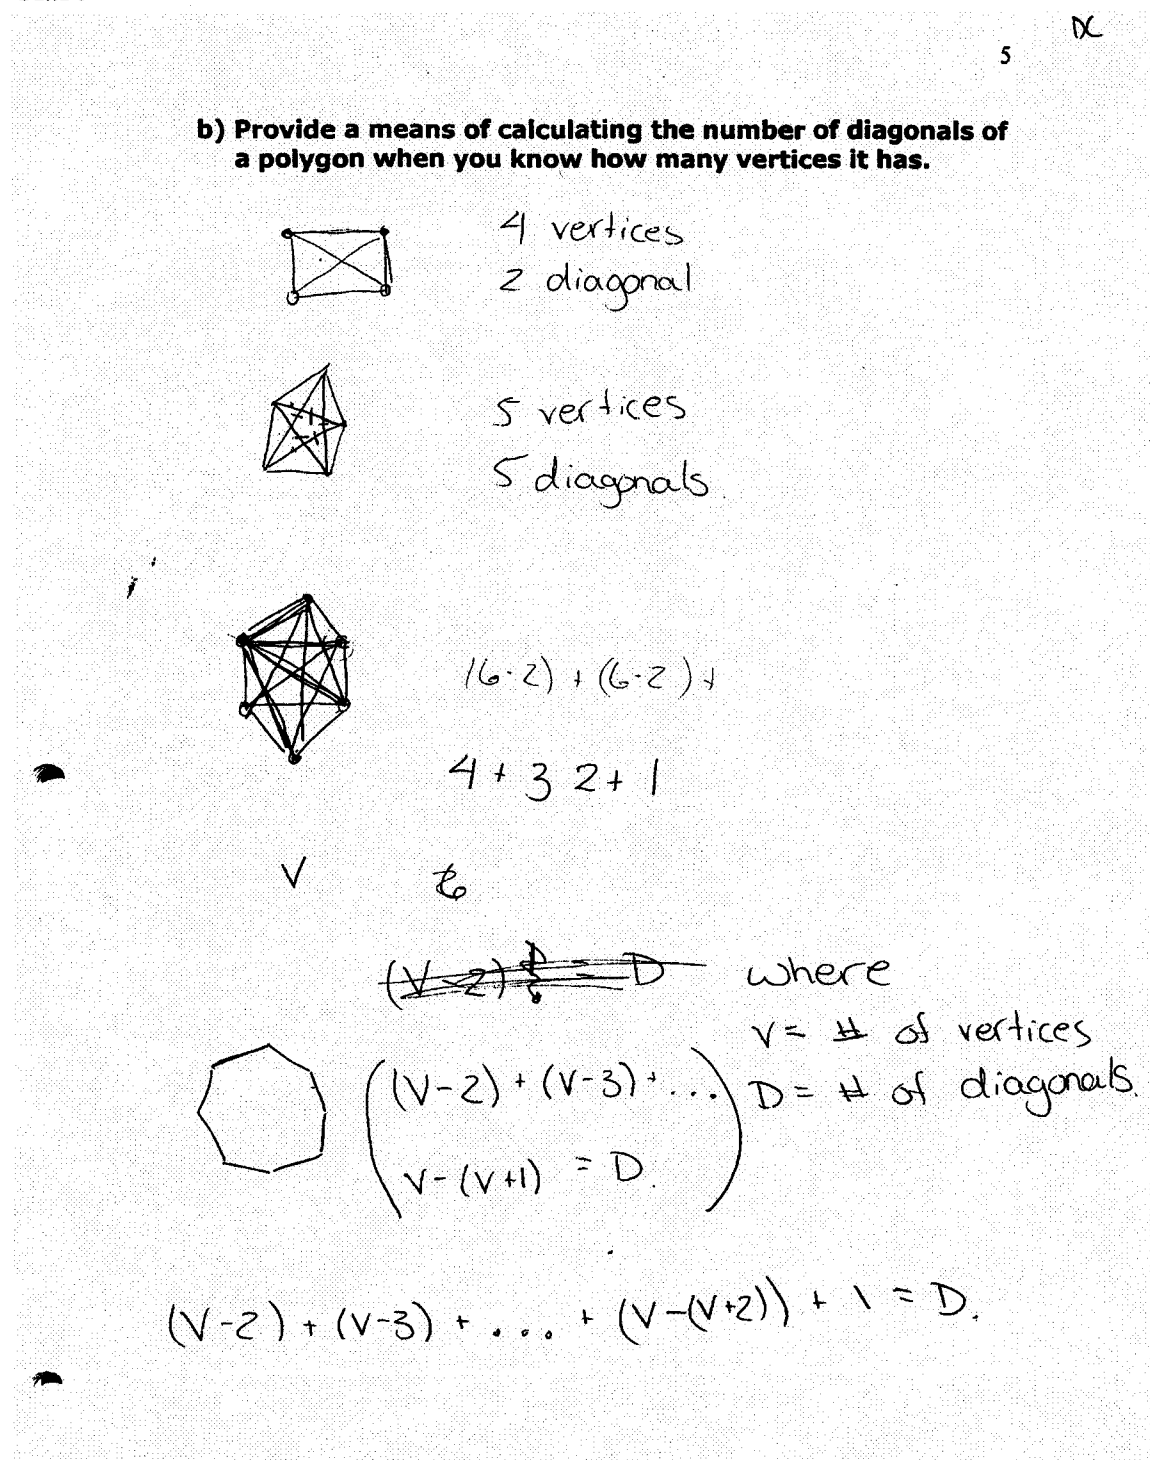 DC
5
b) Provide a means of calculating the number of diagonals of
a polygon when you know how many vertices it has.
4 vertices
2 diagonal
5 vertices
5 diagonals
(6-2) + (6-2) +
4 + 3 2 + 1
V
6
(V-2) = D where
V = # of vertices
((V-2) + (V-3) + ... D = # of diagonals.
V-(V+1) = D.)
(V-2) + (V-3) + .... + (V-(V+2)) + 1 = D.